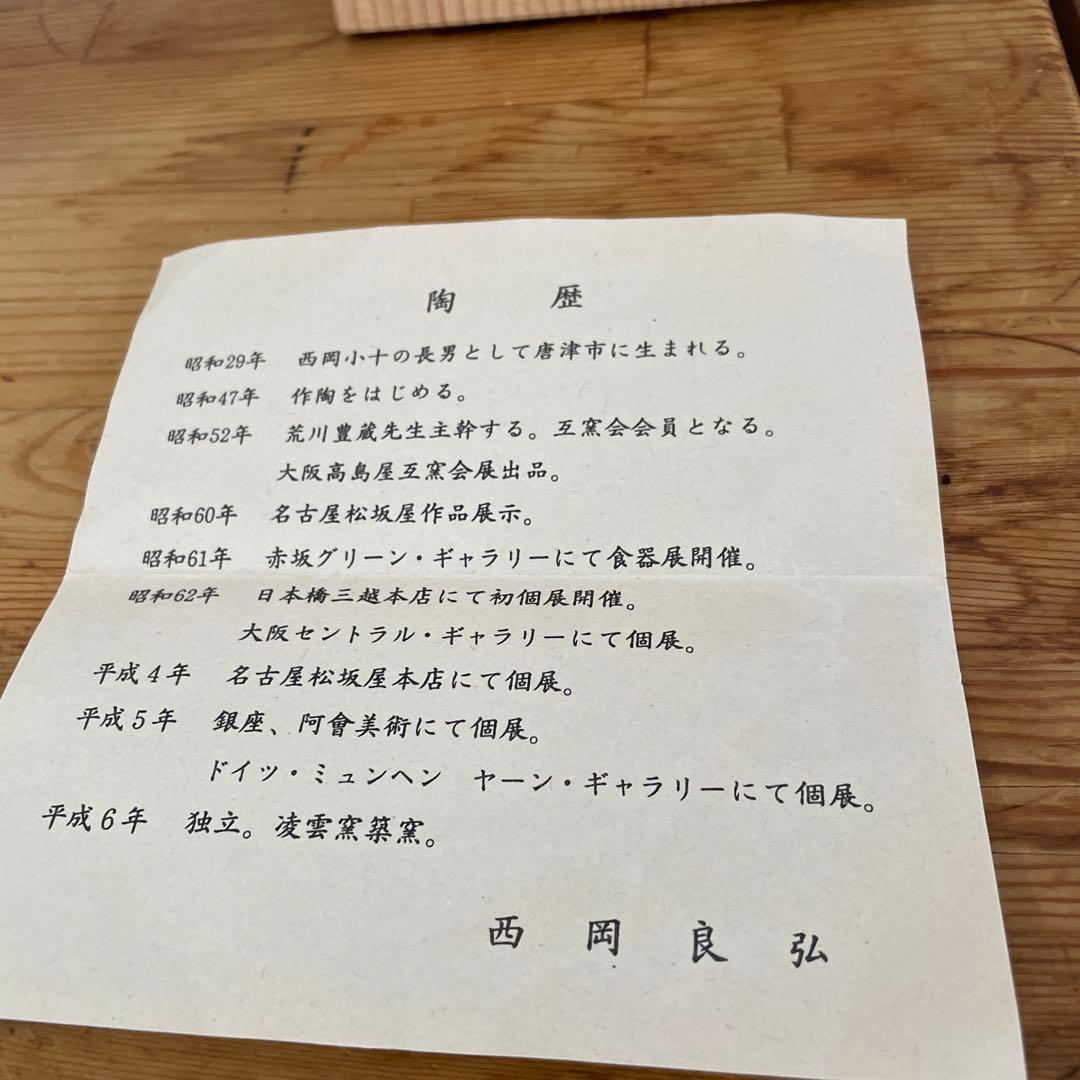 陶歴
昭和29年 西岡小十の長男として唐津市に生まれる。
昭和47年 作陶をはじめる。
昭和52年 荒川豊蔵先生主幹する。互窯会会員となる。
大阪高島屋互窯会展出品。
昭和60年 名古屋松坂屋作品展示。
昭和61年 赤坂グリーン・ギャラリーにて食器展開催。
昭和62年 日本橋三越本店にて初個展開催。
大阪セントラル・ギャラリーにて個展。
平成4年 名古屋松坂屋本店にて個展。
平成5年 銀座、阿會美術にて個展。
ドイツ・ミュンヘン ヤーン・ギャラリーにて個展。
平成6年 独立。凌雲窯築窯。
西岡良弘